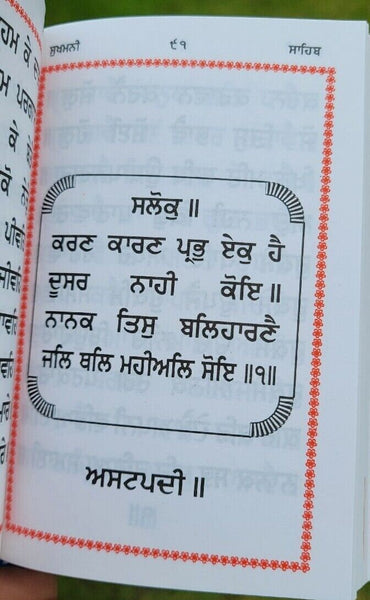 ਸੁਖਮਨੀ ੯੧ ਸਾਹਿਬ
ਸਲੋਕੁ ॥
ਕਰਣ ਕਾਰਣ ਪ੍ਰਭੁ ਏਕੁ ਹੈ
ਦੂਸਰ ਨਾਹੀ ਕੋਇ ॥
ਨਾਨਕ ਤਿਸੁ ਬਲਿਹਾਰਣੈ
ਜਲਿ ਥਲਿ ਮਹੀਅਲਿ ਸੋਇ ॥੧॥
ਅਸਟਪਦੀ ॥